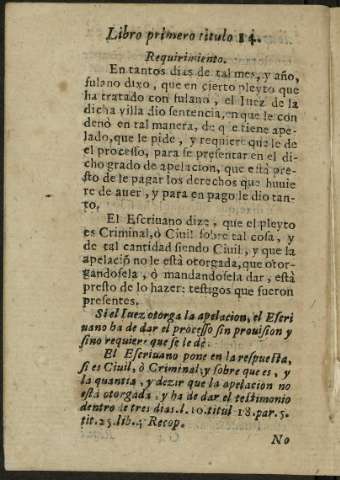 Libro primero titulo 14.
Requirimiento.
En tantos dias de tal mes, y año,
fulano dixo, que en cierto pleyto que
ha tratado con fulano, el Iuez de la
dicha villa dio sentencia, en que le con
denò en tal manera, de que tiene ape-
lado, que le pide, y requiere que le de
el processo, para se presentar en el di-
cho grado de apelacion, que està pre-
sto de le pagar los derechos que huuie
re de auer, y para en pago le dio tan-
to.
El Escriuano dize, que el pleyto
es Criminal, ò Ciuil sobre tal cosa, y
de tal cantidad siendo Ciuil, y que la
apelaciō no le està otorgada, que otor-
gandosela, ò mandandosela dar, està
presto de lo hazer: testigos que fueron
presentes.
Si el Iuez otorga la apelacion, el Escri
uano ha de dar el processo sin prouision y
sino requiere que se le dè.
El Escriuano pone en la respuesta,
si es Ciuil, ò Criminal, y sobre que es, y
la quantia, y dezir que la apelacion no
està otorgada, y ha de dar el testimonio
dentro de tres dias. l. 10. titul 18. par. 5.
tit. 25. lib. 4 Recop.
No